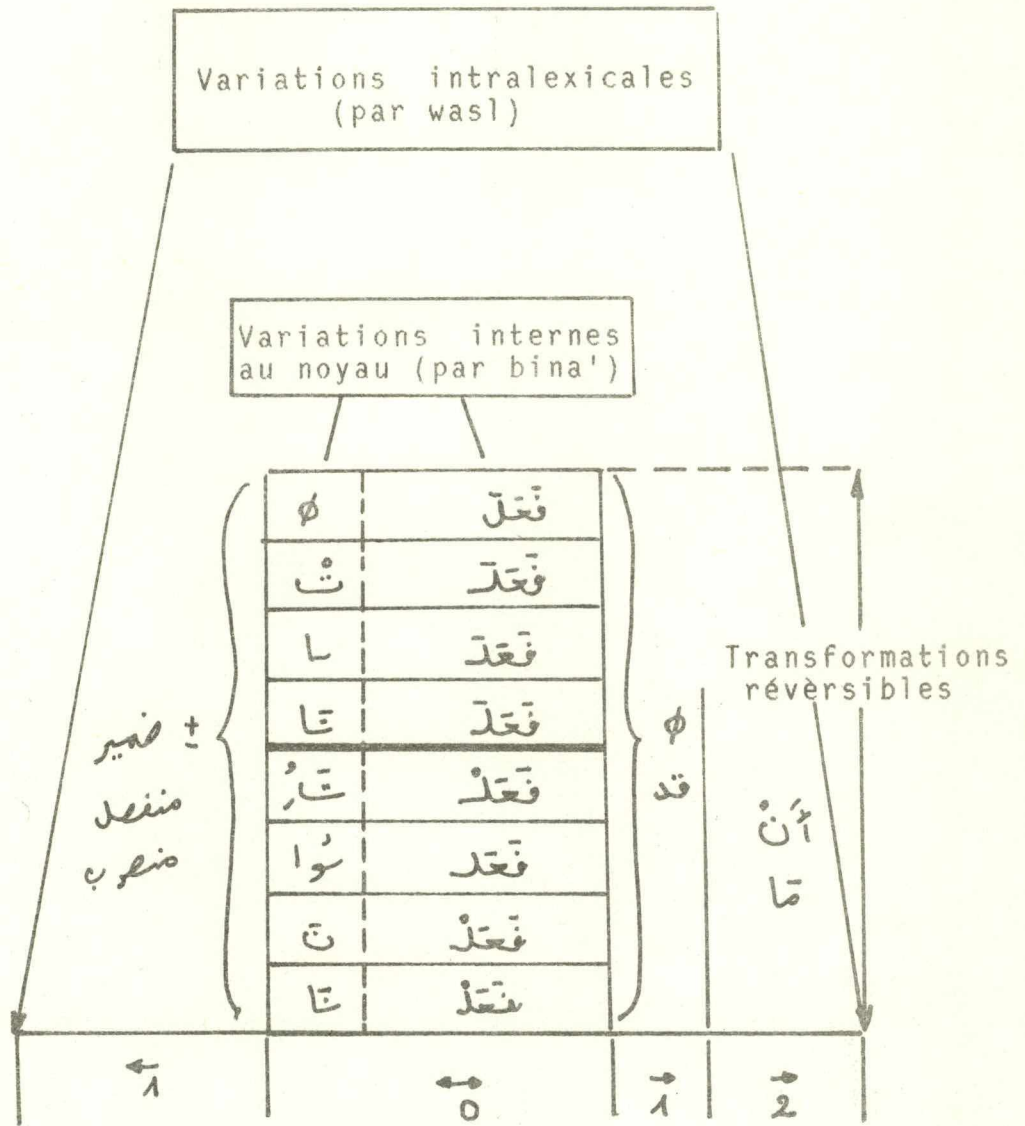 Variations intralexicales
(par wasl)
Variations internes
au noyau (par bina')
ø فَعَلَ
تْ فَعَلَ
ـا فَعَلَ
تَا فَعَلَ
فَعَلْ
ـُوا فَعَلـ
نَ فَعَلْ
نَا فَعَلْ
± ضمير
منفصل
منصوب
ø
قد
أَنْ
مَا
Transformations
révèrsibles
1 0 1 2